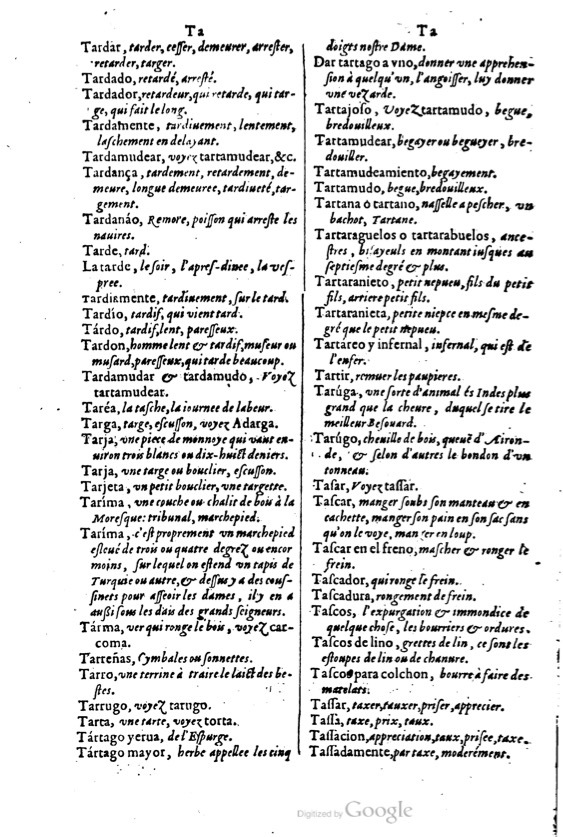 Ta
Tardar, tarder, ceſſer, demeurer, arreſter,
retarder, targer.
Tardado, retardé, arreſté.
Tardador, retardeur, qui retarde, qui tar-
ge, qui fait le long.
Tardamente, tardiuement, lentement,
laſchement en delayant.
Tardamudear, voyez tartamudear, &c.
Tardança, tardement, retardement, de-
meure, longue demeuree, tardiueté, tar-
gement.
Tardanáo, Remore, poiſſon qui arreſte les
nauires.
Tarde, tard.
La tarde, le ſoir, l'apreſ-dinee, la veſ-
pree.
Tardiamente, tardiuement, ſur le tard.
Tardío, tardif, qui vient tard.
Tárdo, tardif, lent, pareſſeux.
Tardon, homme lent & tardif, muſeur ou
muſard, pareſſeux, qui tarde beaucoup.
Tardamudar & tardamudo, Voyez
tartamudear.
Taréa, la taſche, la iournee de labeur.
Targa, targe, eſcuſſon, voyez Adarga.
Tarja, vne piece de monnoye qui vaut en-
uiron trois blancs ou dix-huict deniers.
Tarja, vne targe ou bouclier, eſcuſſon.
Tarjeta, vn petit bouclier, vne targette.
Taríma, vne couche ou chalit de bois à la
Moreſque: tribunal, marchepied.
Taríma, c'eſt proprement vn marchepied
eſleué de trois ou quatre degrez ou encor
moins, ſur lequel on eſtend vn tapis de
Turquie ou autre, & deſſus y a des couſ-
ſinets pour aſſeoir les dames, il y en a
außi ſous les dais des grands ſeigneurs.
Tárma, ver qui ronge le bois, voyez car-
coma.
Tarreñas, Cymbales ou ſonnettes.
Tarro, vne terrine à traire le laict des be-
ſtes.
Tarrugo, voyez tarugo.
Tarta, vne tarte, voyez torta.
Tártago yerua, de l'Eſpurge.
Tártago mayor, herbe appellee les cinq
Ta
doigts noſtre Dame.
Dar tartago a vno, donner vne apprehen-
ſion à quelqu'vn, l'angoiſſer, luy donner
vne vezarde.
Tartajoſo, Voyez tartamudo, begue,
bredouilleux.
Tartamudear, begayer ou begueyer, bre-
douiller.
Tartamudeamiento, begayement.
Tartamudo, begue, bredouilleux.
Tartana ò tartano, naſſelle a peſcher, vn
bachot, Tartane.
Tartaraguelos o tartarabuelos, ance-
ſtres, biſayeuls en montant iuſques au
ſeptieſme degré & plus.
Tartaranieto, petit nepueu, fils du petit
fils, arriere petit fils.
Tartaranieta, petite niepce en meſme de-
gré que le petit nepueu.
Tartáreo y infernal, infernal, qui eſt de
l'enfer.
Tartir, remuer les paupieres.
Tarúga, vne ſorte d'animal és Indes plus
grand que la cheure, duquel ſe tire le
meilleur Beſouard.
Tarúgo, cheuille de bois, queuë d'Airon-
de, & ſelon d'autres le bondon d'vn
tonneau.
Taſar, Voyez taſſar.
Taſcar, manger ſoubs ſon manteau & en
cachette, manger ſon pain en ſon ſac ſans
qu'on le voye, manger en loup.
Taſcar en el freno, maſcher & ronger le
frein.
Taſcador, qui ronge le frein.
Taſcadura, rongement de frein.
Taſcos, l'expurgation & immondice de
quelque choſe, les bourriers & ordures.
Taſcos de lino, grettes de lin, ce ſont les
eſtoupes de lin ou de chanure.
Taſcos para colchon, bourre à faire des
matelats.
Taſſar, taxer, tauxer, priſer, apprecier.
Taſſa, taxe, prix, taux.
Taſſacion, appreciation, taux, priſee, taxe.
Taſſadamente, par taxe, moderément.
Digitized by Google